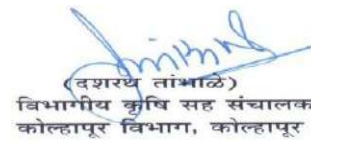 (दशरथ तांभाळे)
विभागीय कृषि सह संचालक
कोल्हापूर विभाग, कोल्हापूर